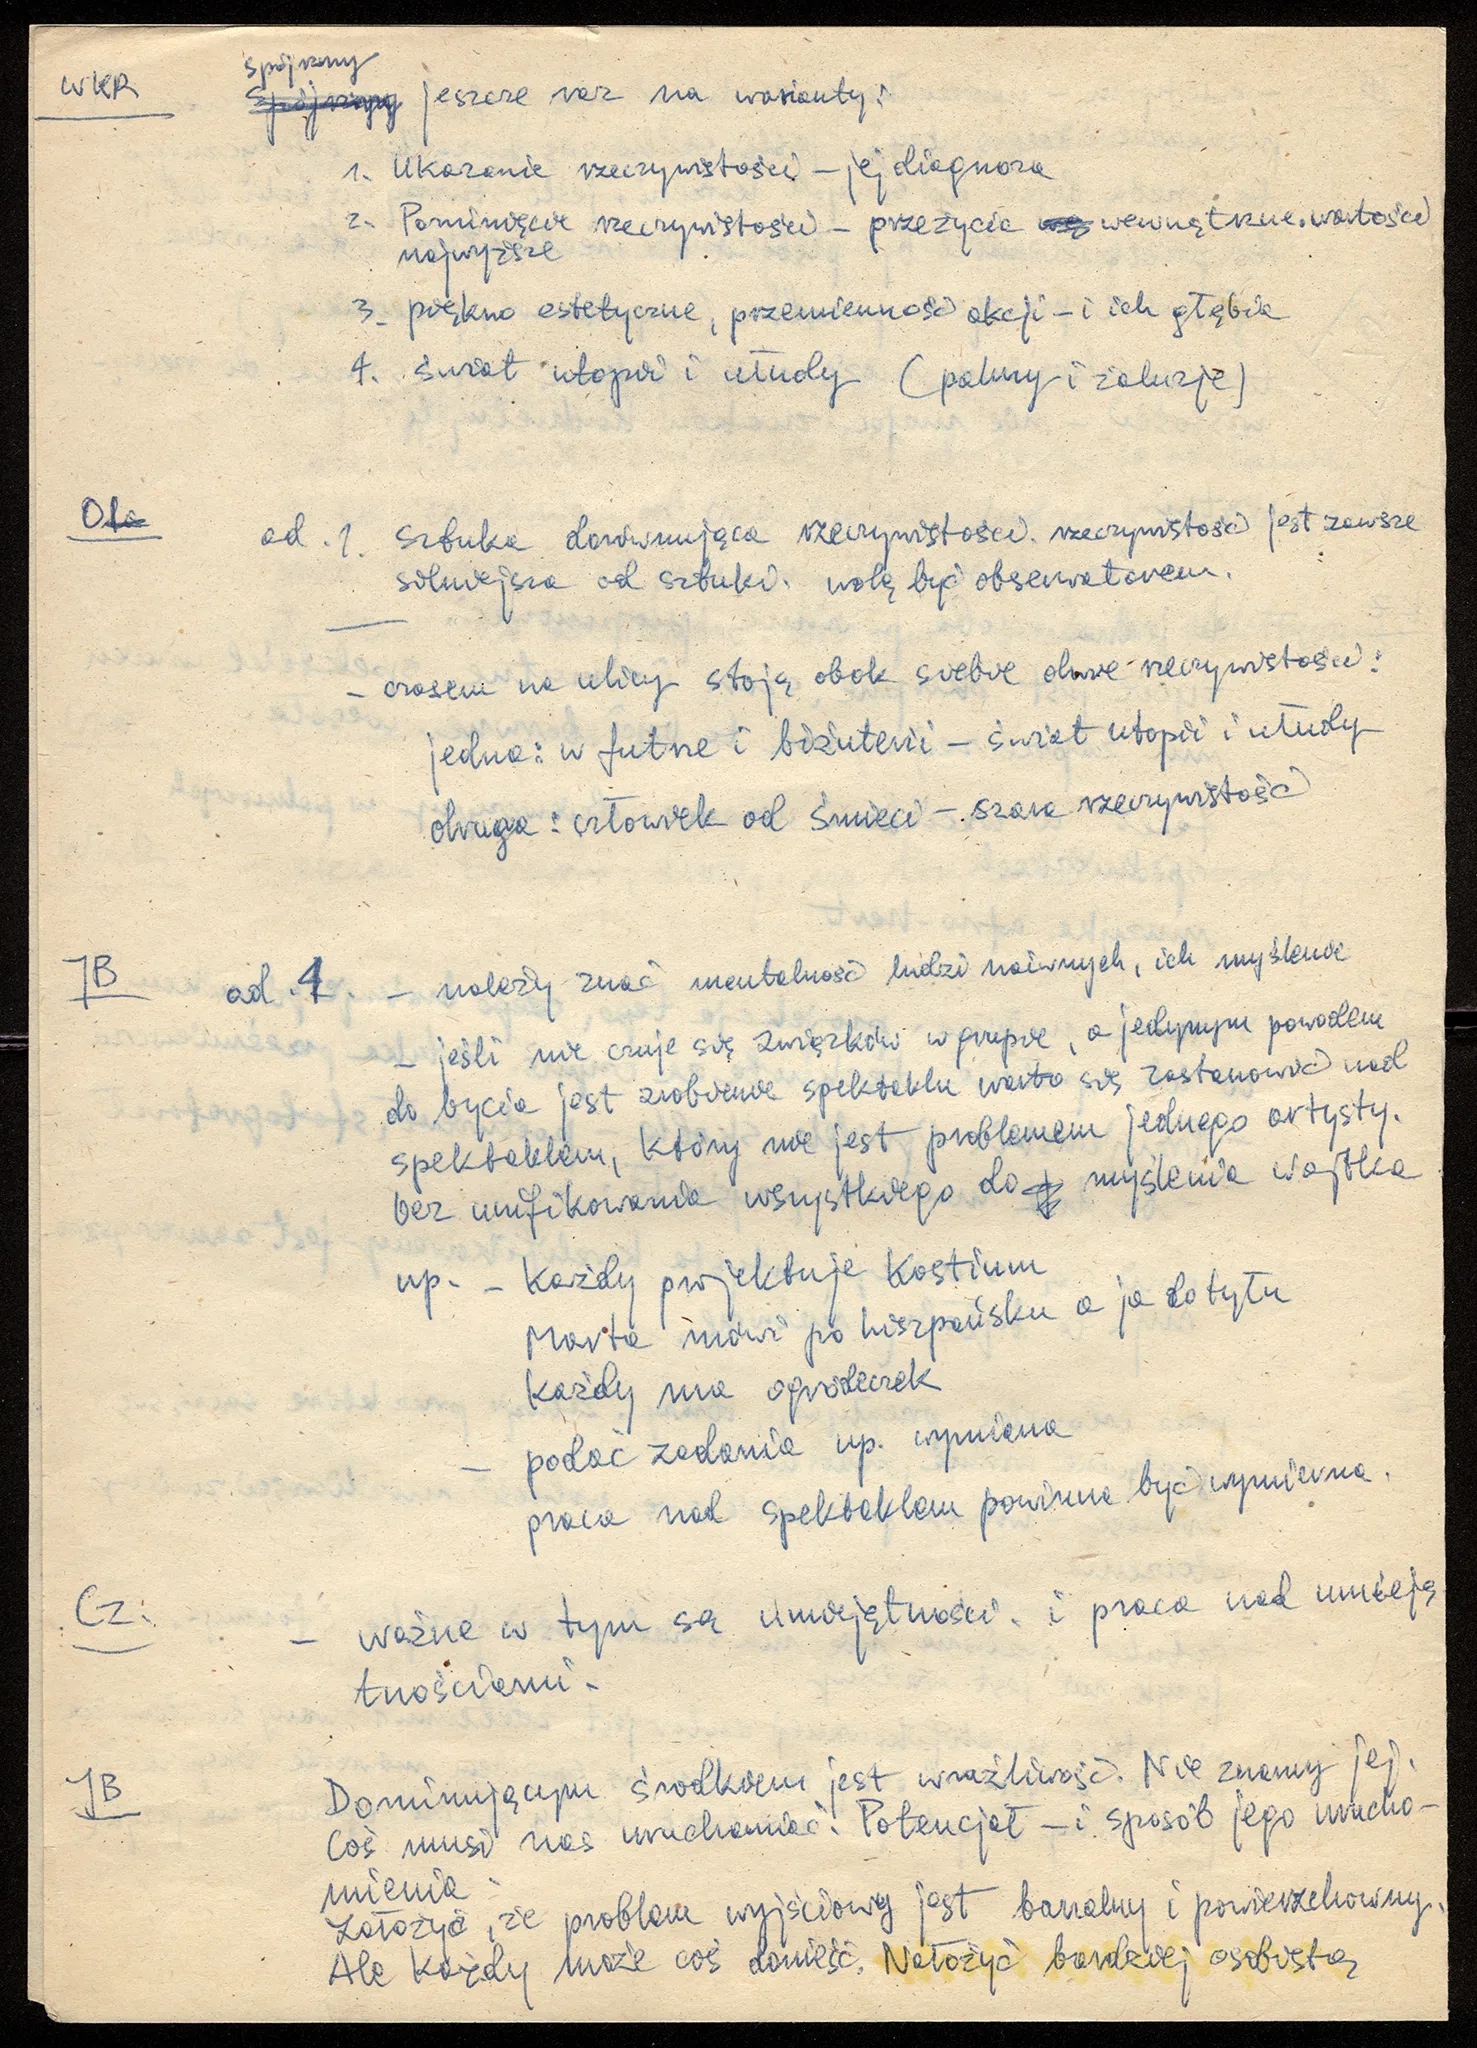 WKR
spójrzmy
Spójrzmy jeszcze raz na warianty:
1. Ukazanie rzeczywistości – jej diagnoza
2. Pominięcie rzeczywistości – przeżycia wewnętrzne. wartości
najwyższe
3. piękno estetyczne, przemienność akcji – i ich głębia
4. świat utopii i ułudy (palmy i żaluzje)
Ola
ad. 1. Sztuka dorównująca rzeczywistości. rzeczywistość jest zawsze
silniejsza od sztuki. wolę być obserwatorem.
– czasem na ulicy stoją obok siebie dwie rzeczywistości:
jedna: w futrze i biżuterii – świat utopii i ułudy
druga: człowiek od śmieci – szara rzeczywistość
JB
ad. 4. – należy znać mentalność ludzi naiwnych, ich myślenie
– jeśli nie czuje się związków w grupie, a jedynym powodem
do bycia jest zrobienie spektaklu warto się zastanowić nad
spektaklem, który nie jest problemem jednego artysty.
bez unifikowania wszystkiego do myślenia Wojtka
np. – Każdy projektuje kostium
Marta mówi po hiszpańsku a ja do tyłu
Każdy ma ogródeczek
– podać zadania np. wymiana
praca nad spektaklem powinna być wymierna.
Cz.
– ważne w tym są umiejętności. i praca nad umieję
tnościami.
JB
Dominującym środkiem jest wrażliwość. Nie znamy jej.
Coś musi nas uruchamiać. Potencjał – i sposób jego urucho–
mienia.
Założyć, że problem wyjściowy jest banalny i powierzchowny.
Ale każdy może coś donieść. Nałożyć bardziej osobistą